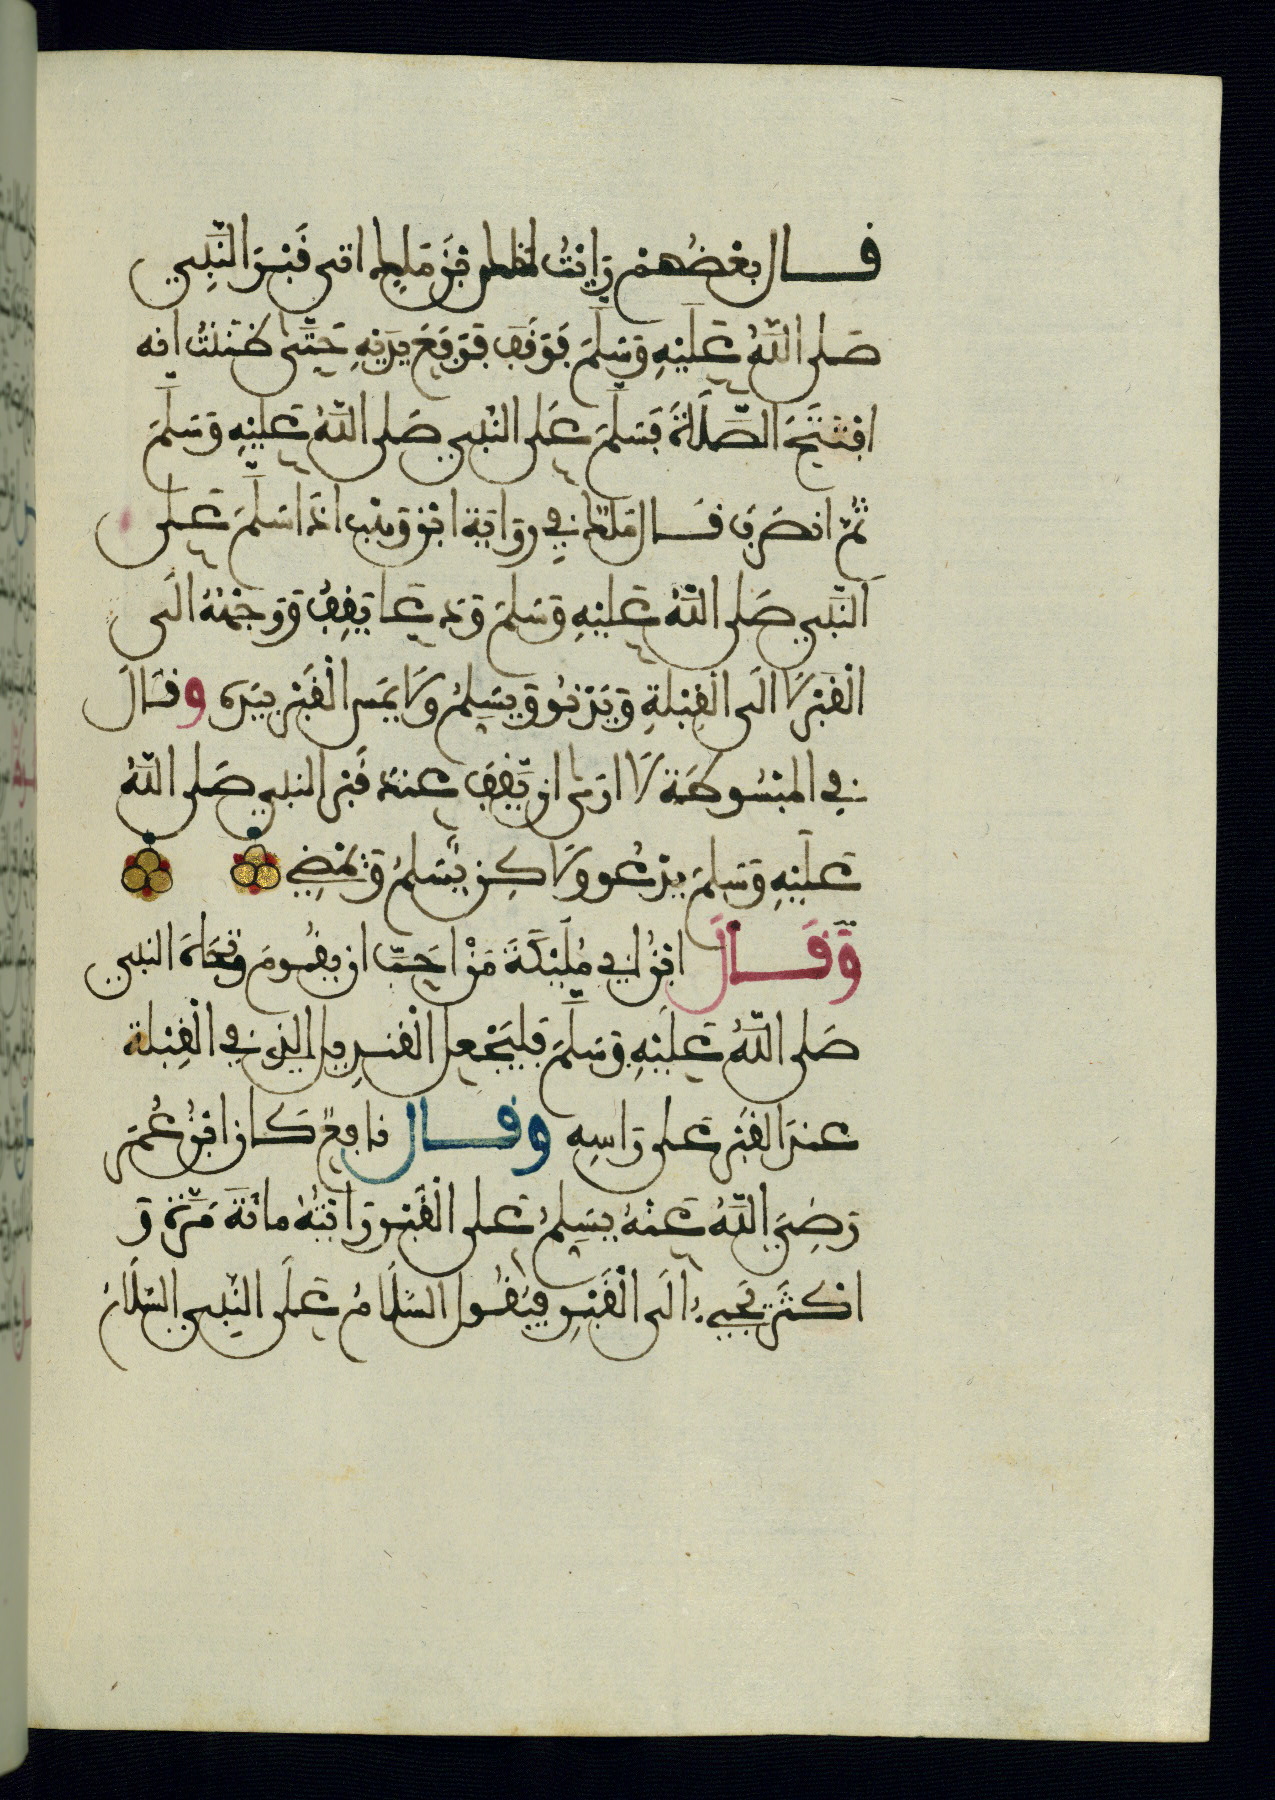 قال بعضهم رايت انس بن ملك اتى قبر النبي
صلى الله عليه وسلم فوقف فرفع يديه حتى ظننت انه
افتتح الصلاة فسلم على النبي صلى الله عليه وسلم
ثم انصرف قال ملك في رواية ابن وهب اذا سلم على
النبي صلى الله عليه وسلم ودعا يقف ووجهه الى
القبر لا الى القبلة ويدنو ويسلم ولا يمس القبر بيده وقال
في المبسوطة لا ارى ان يقف عند قبر النبي صلى الله
عليه وسلم يدعو ولاكن يسلم ويمضي
وقال ابن ابي مليكة من احب ان يقوم وجاه النبي
صلى الله عليه وسلم فليجعل القنديل الذي في القبلة
عند القبر على راسه وقال نافع كان ابن عمر
رضي الله عنه يسلم على القبر رايته مائة مرة و
اكثر يجيء الى القبر فيقول السلام على النبي السلام